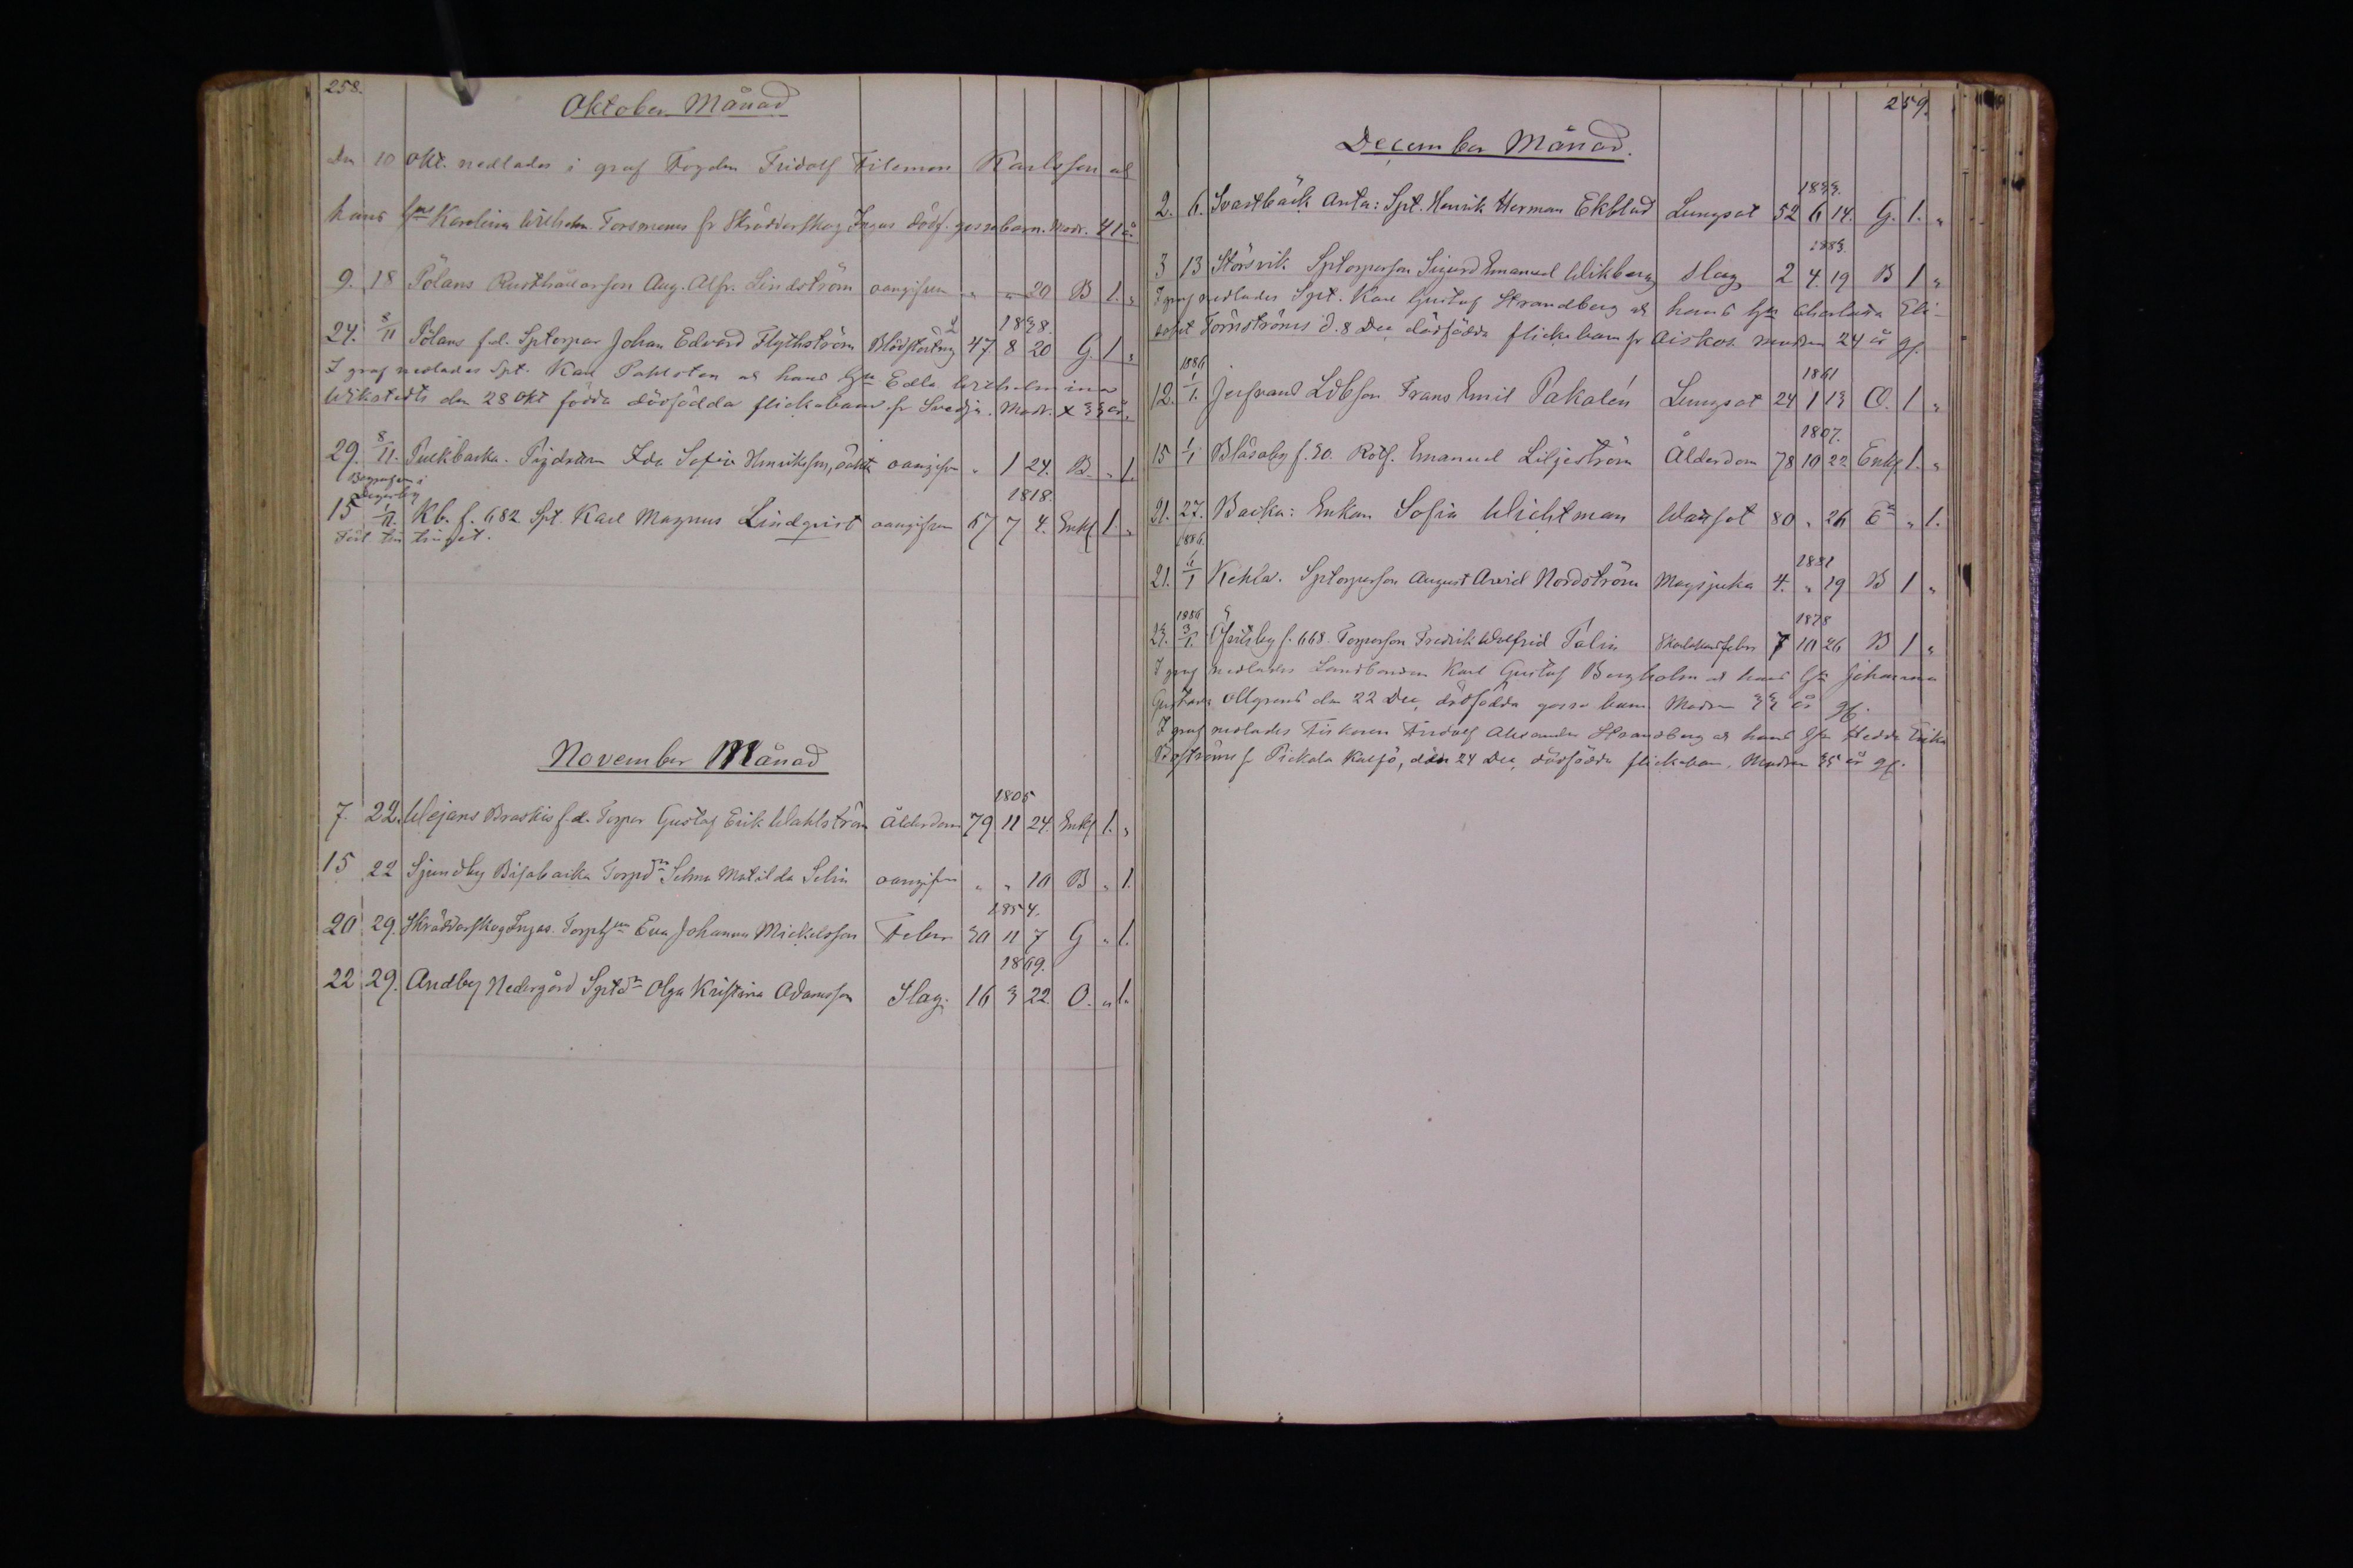 258.
Oktober Månad
Den 10 Okt. nedlades i graf Fogden Fridolf Filemon Karlsson och
hans Hus Karolina Wilhelm. Forsmans fr Skräddarskog Ingas dödf. gossebarn. Modr. 41 år.
9. 18 Pölans Rusthållarson Aug. Alfr. Lindström oangifven " " 20 B 1. "
1838.
24. 8/11 Pölans f.d. Sptorpar Johan Edvard Flythström Blödstörtng 47 8 20 G 1 "
I graf nedlades Spt. Karl Pahlsten och hans Hu Edla Wilhelmina
Wikstedts den 28 Okt födda dödfödda flickebarn fr Svedja. Modr. x 33 år.
29. 8/11. Pulkbacka. Pigdrdttrn Ida Sofia Henriksson, oäkta oangifven " 1 24. B. " 1.
Begrafven i
Degerby
1818.
15 1/11. Kb. f. 682 Spt. Karl Magnus Lindqvist oangifven 67 7 4. Enkl 1 "
November Månad
1805
7. 22. Wejans Braskis f.d. Torpar Gustaf Erik Wahlström Ålderdom 79 11 24. Enkl 1. "
15 22 Sjundby Bisabacka Torpdr Selma Matilda Selin oangifven " " 10 B " 1.
1854.
20 29. Skräddarskog Ingas. Torphun Eva Johanna Mickelsson Feber 30 11 7 G " 1.
1869.
22 29. Andby Nedergård Sptdr Olga Kristina Adamsson Slag. 16 3 22 O. " 1.
259.
December Månad.
1833.
2. 6. Svartbäck Anta: Spt. Henrik Herman Ekblad Lungsot 52 6 14. G. 1. "
1883.
3 13 Störsvik Sptorparson Sigurd Emanuel Wikberg Slag 2 4. 19 B 1 "
I graf nedlades Spt. Karl Gustaf Strandberg och hans Hu Charlotta Eli-
sabet Törnströms d. 8 Dec dödfödda flickebarn fr Aiskos modren 24 år gl.
1886 1861
12. 1/1. Jusfvans Ldbson Frans Emil Pakalén Lungsot 24 1 13 O. 1 "
1807.
15 1/1 Blåsaby f. 30. Rotf. Emanuel Liljeström Ålderdom 78 10 22 Enkl 1. "
21. 27. Backa: Enkan Sofia Wichtman Wattsot 80 " 26 En " 1.
1886. 1881
21. 6/1 Kehla. Sptorparson August Arvid Nordström Magsjuka 4. " 19 B 1 "
1886 1878
23. 3/1. Öfvitsby f. 668. Torparson Fredrik Wolfrid Talin Skarlakansfeber 7 10 26 B 1 "
I graf nedlades Landbonden Karl Gustaf Bergholm och hans Hu Johanna
Gustava Allgrens den 22 Dec, dödfödda gosse barn Modren 33 år gl.
I graf nedlades Fiskaren Fridolf Alexander Strandberg och hans Hu Hedda Erika
fr Pickala Kalfö, den 24 Dec, dödfödda flickebarn, Modren 35 år gl.